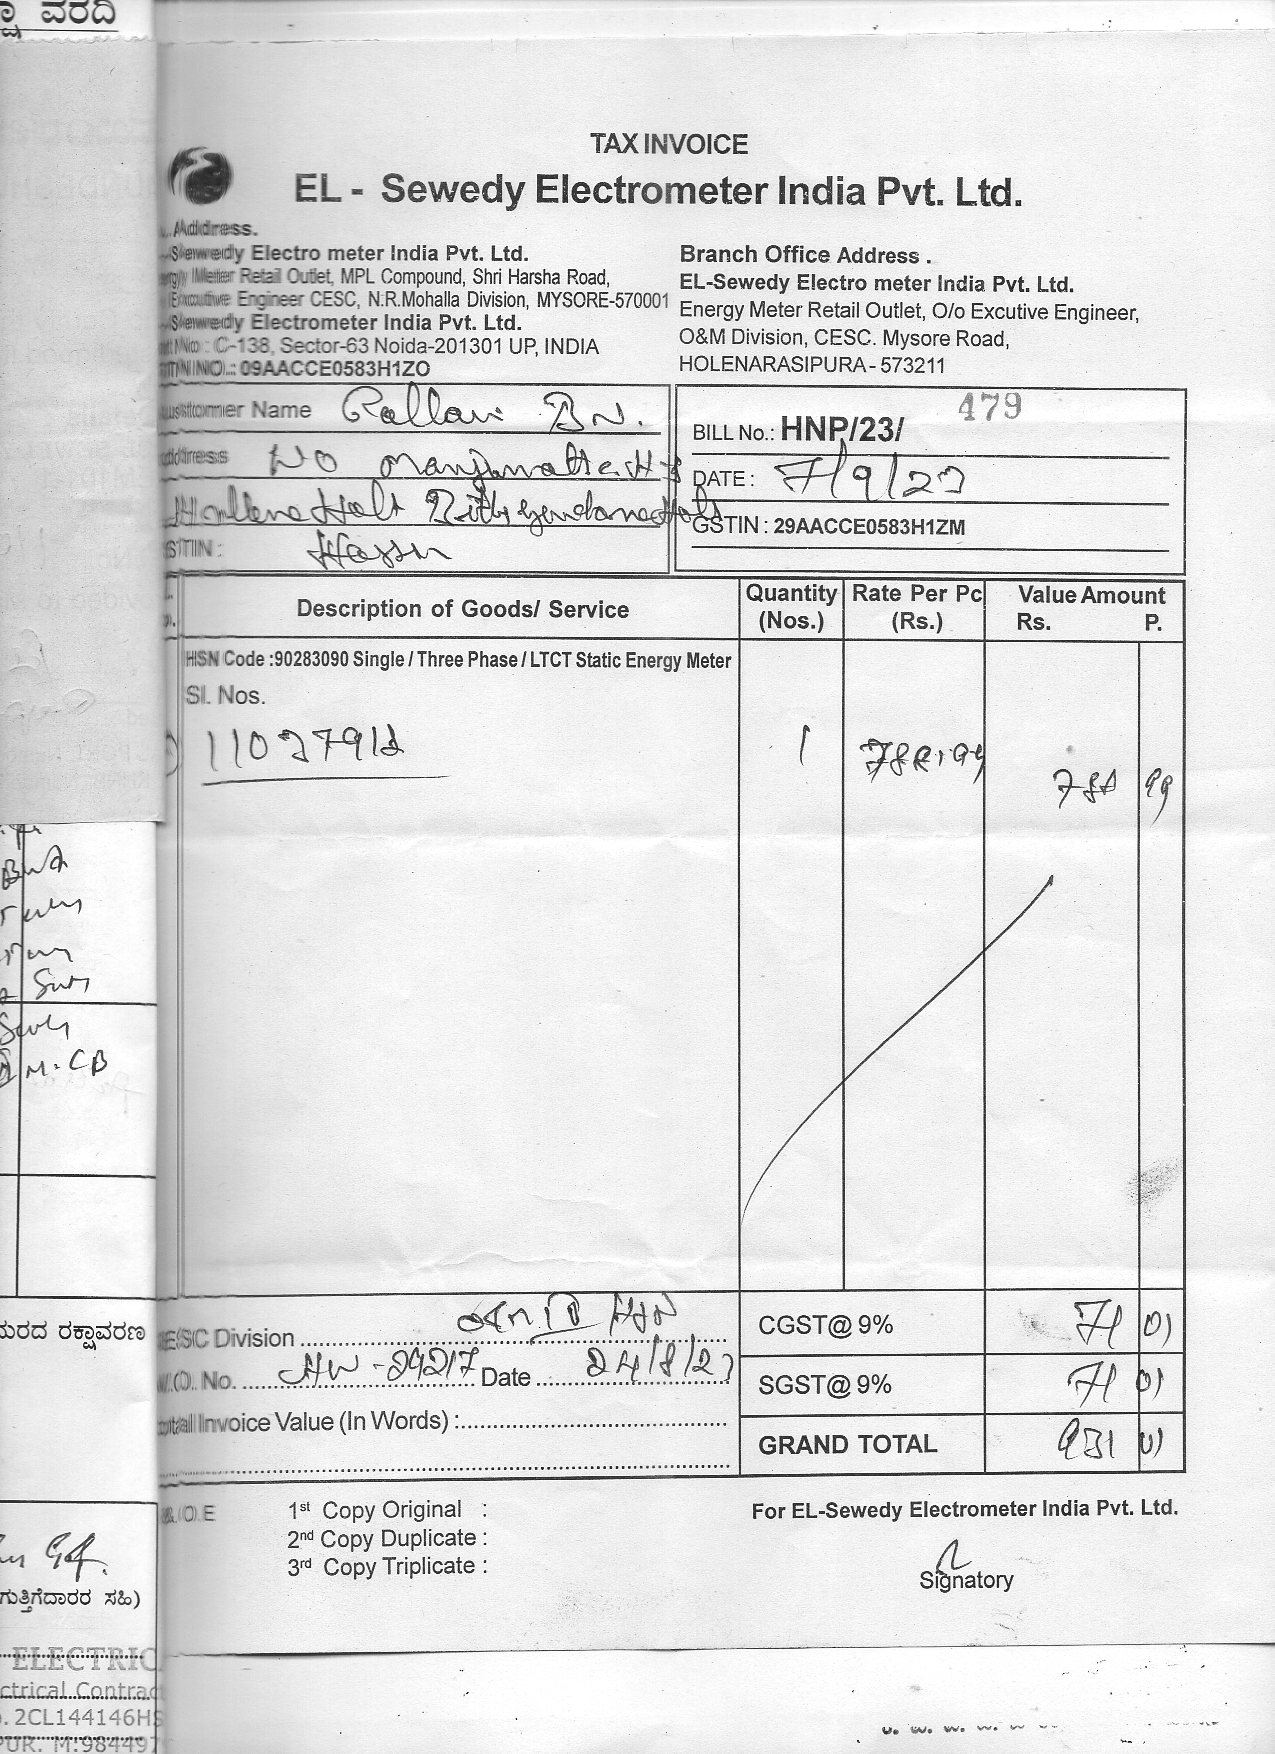 ವರದಿ
TAX INVOICE
EL - Sewedy Electrometer India Pvt. Ltd.
Address.
Sewedy Electro meter India Pvt. Ltd.
Meter Retail Outlet, MPL Compound, Shri Harsha Road,
Executive Engineer CESC, N.R.Mohalla Division, MYSORE-570001
Sewedy Electrometer India Pvt. Ltd.
No : C-138, Sector-63 Noida-201301 UP, INDIA
TIN NO.: 09AACCE0583H1ZO
Branch Office Address .
EL-Sewedy Electro meter India Pvt. Ltd.
Energy Meter Retail Outlet, O/o Excutive Engineer,
O&M Division, CESC. Mysore Road,
HOLENARASIPURA - 573211
ustomer Name Pallavi B N.
ddress W/O
STIN : Hassan
BILL No.: HNP/23/ 479
DATE : 7/9/23
GSTIN : 29AACCE0583H1ZM
Description of Goods/ Service Quantity (Nos.) Rate Per Pc (Rs.) Value Amount Rs. P.
HSN Code :90283090 Single / Three Phase / LTCT Static Energy Meter
Sl. Nos.
1 788.99
788 99
M.CB
ಮರದ ರಕ್ಷಾವರಣ
ESC Division HJN
.O. No. Date 24/8/23
otal Invoice Value (In Words) :
CGST@ 9% 71 01
SGST@ 9% 71 01
GRAND TOTAL 931 01
&.O.E
1st Copy Original :
2nd Copy Duplicate :
3rd Copy Triplicate :
For EL-Sewedy Electrometer India Pvt. Ltd.
Signatory
ಗುತ್ತಿಗೆದಾರರ ಸಹಿ)
ELECTRIC
ctrical Contrac
.2CL144146HS
PUR. M:98449